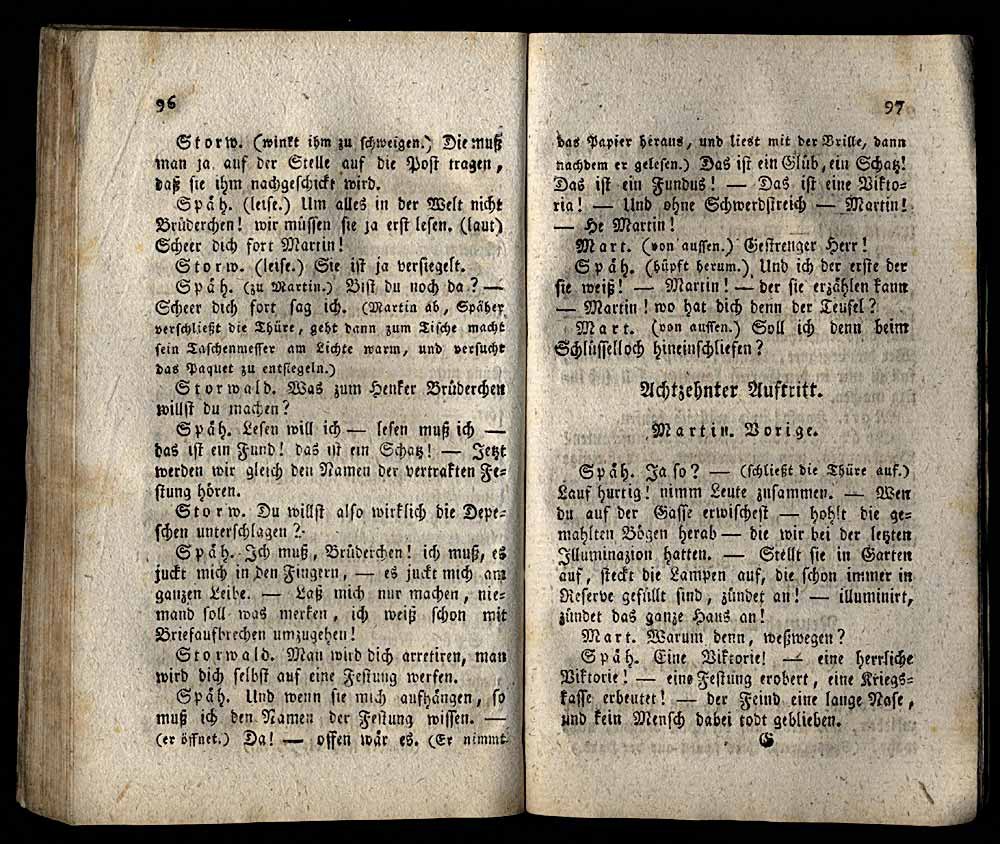 96
Storw. (winkt ihm zu schweigen.) Die muß
man ja auf der Stelle auf die Post tragen,
daß sie ihm nachgeschickt wird.
Späh. (leise.) Um alles in der Welt nicht
Brüderchen! wir müssen sie ja erst lesen. (laut)
Scheer dich fort Martin!
Storw. (leise.) Sie ist ja versiegelt.
Späh. (zu Martin.) Bist du noch da? —
Scheer dich fort sag ich. (Martin ab, Späher
verschließt die Thüre, geht dann zum Tische macht
sein Taschenmesser am Lichte warm, und versucht
das Paquet zu entsiegeln.)
Storwald. Was zum Henker Brüderchen
willst du machen?
Späh. Lesen will ich — lesen muß ich —
das ist ein Fund! das ist ein Schatz! — Jetzt
werden wir gleich den Namen der vertrakten Fe-
stung hören.
Storw. Du willst also wirklich die Depe-
schen unterschlagen?
Späh. Ich muß, Brüderchen! ich muß, es
juckt mich in den Fingern, — es juckt mich am
ganzen Leibe. — Laß mich nur machen, nie-
mand soll was merken, ich weiß schon mit
Briefaufbrechen umzugehen!
Storwald. Man wird dich arretiren, man
wird dich selbst auf eine Festung werfen.
Späh. Und wenn sie mich aufhängen, so
muß ich den Namen der Festung wissen. —
(er öffnet.) Da! — offen wär es. (Er nimmt
97
das Papier heraus, und liest mit der Brille, dann
nachdem er gelesen.) Das ist ein Glük, ein Schatz!
Das ist ein Fundus! — Das ist eine Vikto-
ria! — Und ohne Schwerdstreich — Martin!
— He Martin!
Mart. (von aussen.) Gestrenger Herr!
Späh. (hüpft herum.) Und ich der erste der
sie weiß! — Martin! — der sie erzählen kann
— Martin! wo hat dich denn der Teufel?
Mart. (von aussen.) Soll ich denn beim
Schlüsselloch hineinschliefen?
Achtzehnter Auftritt.
Martin. Vorige.
Späh. Ja so? — (schließt die Thüre auf.)
Lauf hurtig! nimm Leute zusammen. — Wen
du auf der Gasse erwischest — hohlt die ge-
mahlten Bögen herab — die wir bei der letzten
Illuminazion hatten. — Stellt sie in Garten
auf, steckt die Lampen auf, die schon immer in
Reserve gefüllt sind, zündet an! — illuminirt,
zündet das ganze Haus an!
Mart. Warum denn, weßwegen?
Späh. Eine Viktorie! — eine herrliche
Viktorie! — eine Festung erobert, eine Kriegs-
kasse erbeutet! — der Feind eine lange Nase,
und kein Mensch dabei todt geblieben.
G